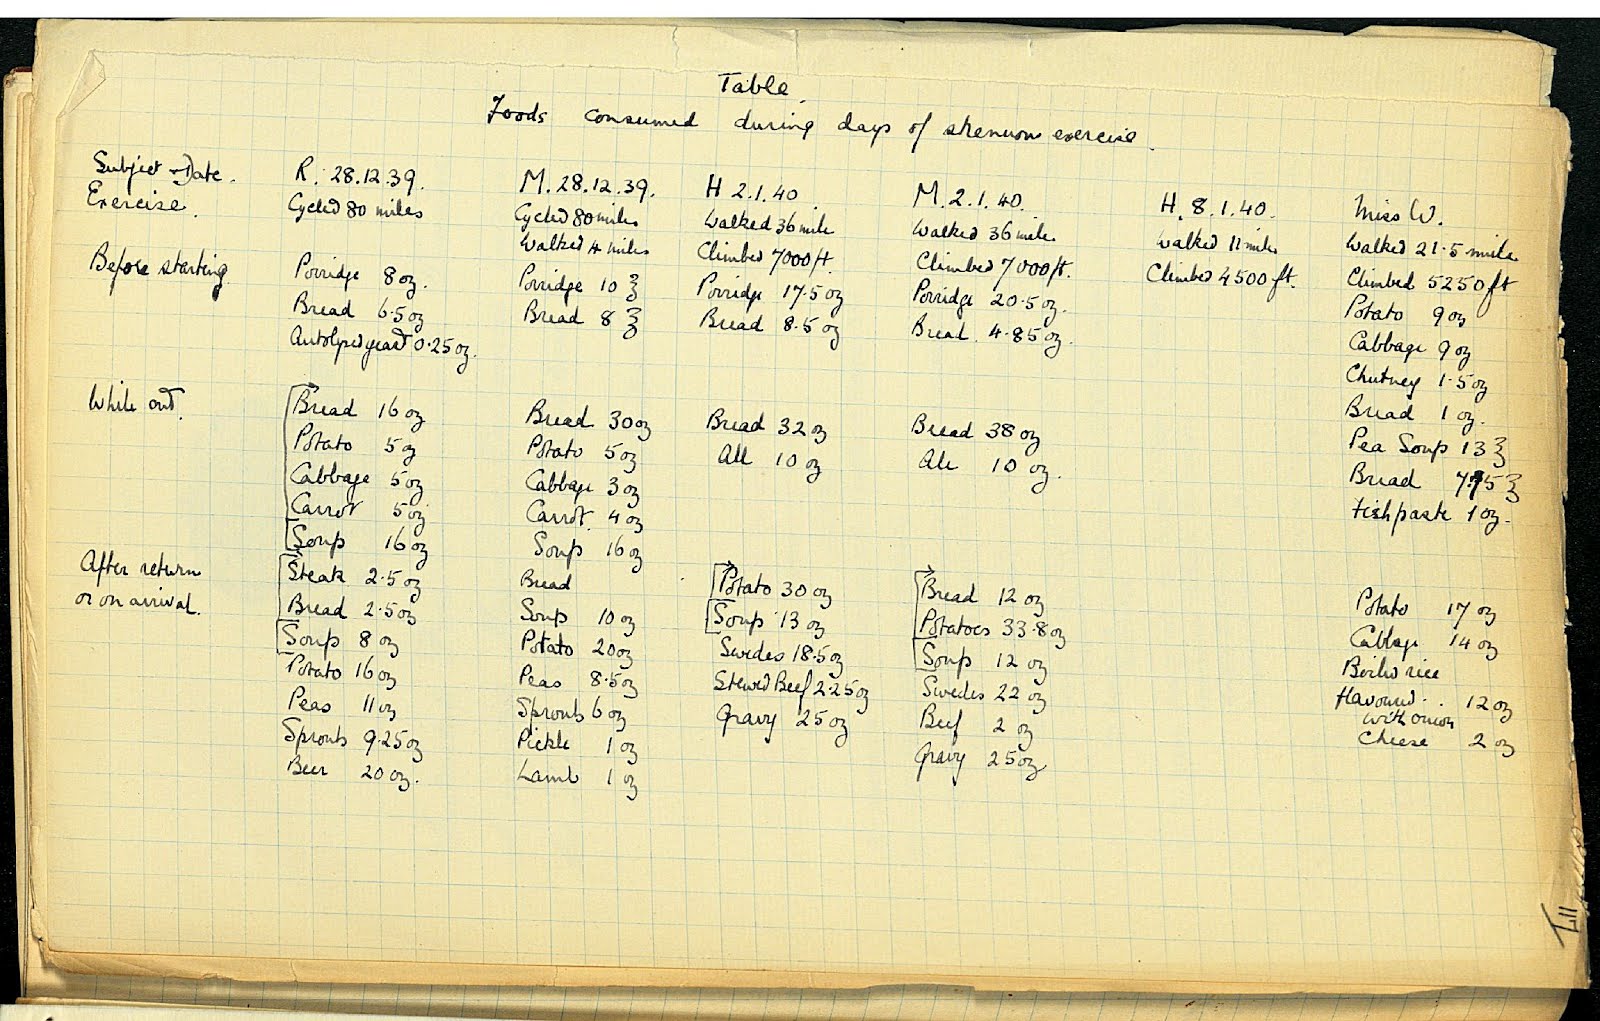 Table
Foods consumed during days of strenuous exercise.
Subject & Date. R. 28.12.39. M. 28.12.39. H 2.1.40 M. 2.1.40. H. 8.1.40. Miss W.
Exercise. Cycled 80 miles Cycled 80 miles Walked 36 mile Walked 36 miles Walked 11 miles Walked 21.5 miles
Walked 4 miles Climbed 7000 ft. Climbed 7000 ft. Climbed 4500 ft. Climbed 5250 ft
Before starting Porridge 8 oz. Porridge 10 ℥ Porridge 17.5 oz Porridge 20.5 oz. Potato 9 oz
Bread 6.5 oz Bread 8 ℥ Bread 8.5 oz Bread. 4.85 oz. Cabbage 9 oz
Autolysed yeast 0.25 oz. Chutney 1.5 oz
Bread 1 oz.
While out. Bread 16 oz Bread 30 oz Bread 32 oz Bread 38 oz Pea Soup 13 ℥
Potato 5 oz Potato 5 oz Ale 10 oz Ale 10 oz. Bread 7.75 ℥
Cabbage 5 oz Cabbage 3 oz Fish paste 1 oz.
Carrot 5 oz Carrot. 4 oz
Soup 16 oz Soup 16 oz
After return Steak 2.5 oz Bread Potato 30 oz Bread 12 oz Potato 17 oz
or on arrival. Bread 2.5 oz Soup 10 oz Soup 13 oz Potatoes 33.8 oz Cabbage 14 oz
Soup 8 oz Potato 20 oz Swedes 18.5 oz Soup 12 oz Boiled rice
Potato 16 oz Peas 8.5 oz Stewed Beef 2.25 oz Swedes 22 oz flavoured . . 12 oz
with onion
Peas 11 oz Sprouts 6 oz Gravy 25 oz Beef 2 oz Cheese 2 oz
Sprouts 9.25 oz Pickle 1 oz Gravy 25 oz
Beer 20 oz. Lamb 1 oz